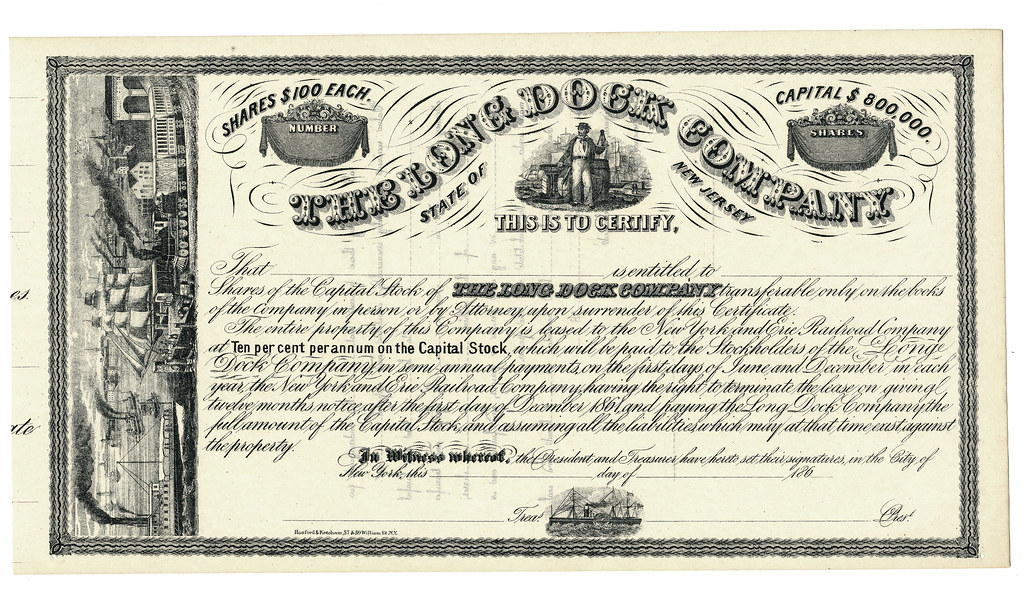 SHARES $100 EACH.
THE LONG DOCK COMPANY
CAPITAL $800,000.
NUMBER
SHARES
STATE OF
NEW JERSEY
THIS IS TO CERTIFY,
That is entitled to
Shares of the Capital Stock of THE LONG DOCK COMPANY transferable only on the books
of the Company in person or by Attorney, upon surrender of this Certificate.
The entire property of this Company is leased to the New York and Erie Railroad Company
at Ten per cent per annum on the Capital Stock, which will be paid to the Stockholders of the Long
Dock Company, in semi-annual payments, on the first days of June and December in each
year, the New York and Erie Railroad Company, having the right to terminate the lease on giving
twelve months notice, after the first day of December 1861, and paying the Long Dock Company, the
full amount of the Capital Stock, and assuming all the liabilities, which may at that time exist against
the property.
In Witness whereof, the President, and Treasurer, have hereto set their signatures, in the City of
New York, this day of 186
Treas. Prest.
Hosford & Ketcham, 57 & 59 William St. N.Y.
es.
ate